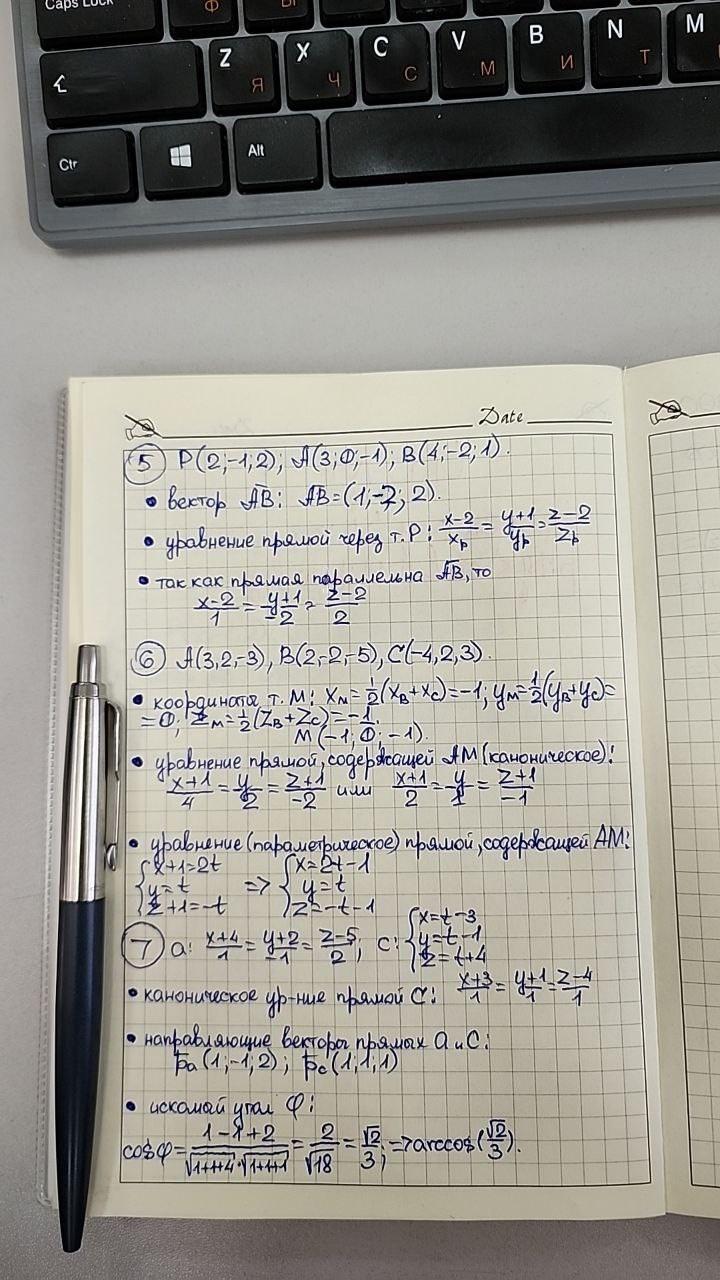 Caps Lock Ф Ы
Z Я X Ч C С V М B И N Т M
Ctr Alt
Date
5 P(2;-1;2); A(3;0;-1); B(4;-2;1).
• вектор AB: AB=(1;-2;2).
• уравнение прямой через т.P: (x-2)/xp = (y+1)/yp = (z-2)/zp
• так как прямая параллельна AB, то
(x-2)/1 = (y+1)/-2 = (z-2)/2
6 A(3,2,-3), B(2,-2,-5), C(-4,2,3).
• координаты т. M: xM=1/2(xB+xC)=-1; yM=1/2(yB+yC)=
=0; zM=1/2(zB+zC)=-1.
M(-1;0;-1).
• уравнение прямой, содержащей AM (каноническое):
(x+1)/4 = y/2 = (z+1)/-2 или (x+1)/2 = y/1 = (z+1)/-1
• уравнение (параметрическое) прямой, содержащей AM:
{x+1=2t {x=2t-1
{y=t => {y=t
{z+1=-t {z=-t-1
7 a: (x+4)/1 = (y+2)/-1 = (z-5)/2; c: {x=t-3
{y=t-1
{z=t+4
• каноническое ур-ние прямой C: (x+3)/1 = (y+1)/1 = (z-4)/1
• направляющие векторы прямых a и c:
pa(1;-1;2); pc(1;1;1)
• искомый угол φ:
cosφ = (1-1+2)/(√1+1+4·√1+1+1) = 2/√18 = √2/3; => arccos(√2/3).